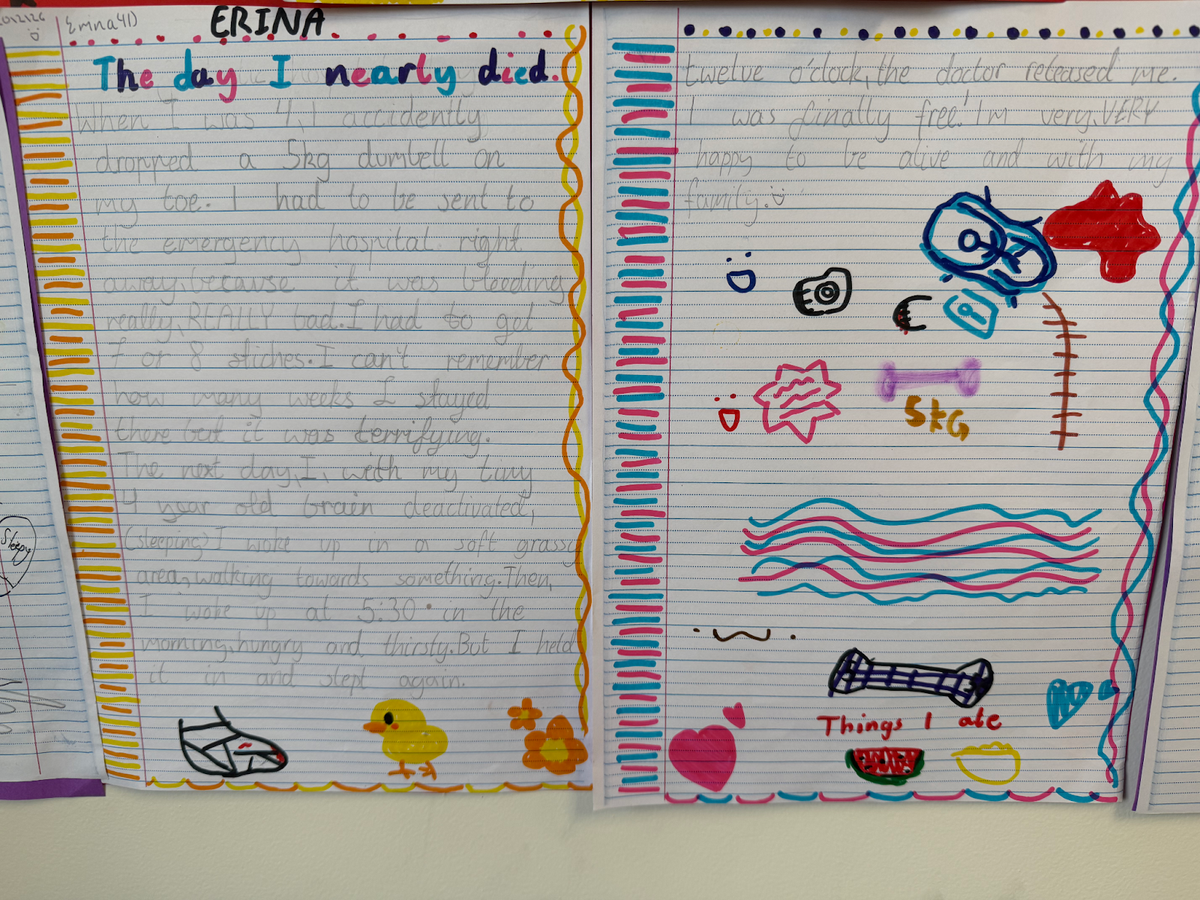 ERINA
The day I nearly died.
When I was 4, I accidently
dropped a 5kg dumbell on
my toe. I had to be sent to
the emergency hospital right
away, because it was bleeding
really, REALLY bad. I had to get
7 or 8 stiches. I can't remember
how many weeks I stayed
there but it was terrifying.
The next day, I, with my tiny
4 year old brain deactivated,
(sleeping) I woke up on a soft grassy
area, walking towards something. Then,
I woke up at 5:30 in the
morning, hungry and thirsty. But I held
it in and slept again.
twelve o'clock, the doctor released me.
I was finally free! I'm very, VERY
happy to be alive and with my
family.
5kG
Things I ate
Sleepy